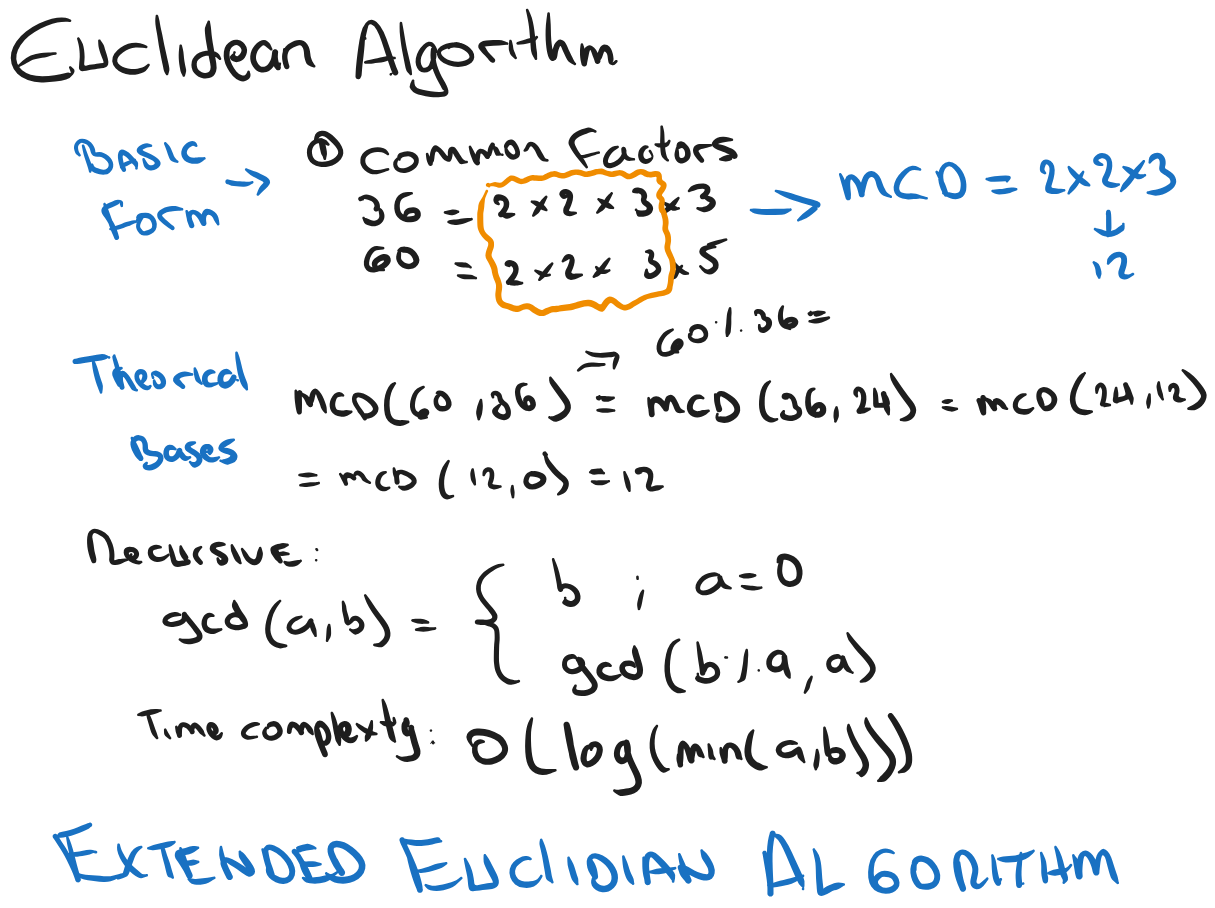 Euclidean Algorithm
BASIC
Form →
① common Factors
36 = 2 × 2 × 3 × 3
60 = 2 × 2 × 3 × 5
→ MCD = 2×2×3
↓
12
→ 60 % 36 =
Theorical
Bases
MCD(60, 36) = MCD (36, 24) = MCD (24, 12)
= MCD (12, 0) = 12
Recursive:
gcd (a, b) = { b ; a = 0
gcd (b % a, a)
Time complexty: O(log(min(a,b)))
EXTENDED EUCLIDIAN ALGORITHM